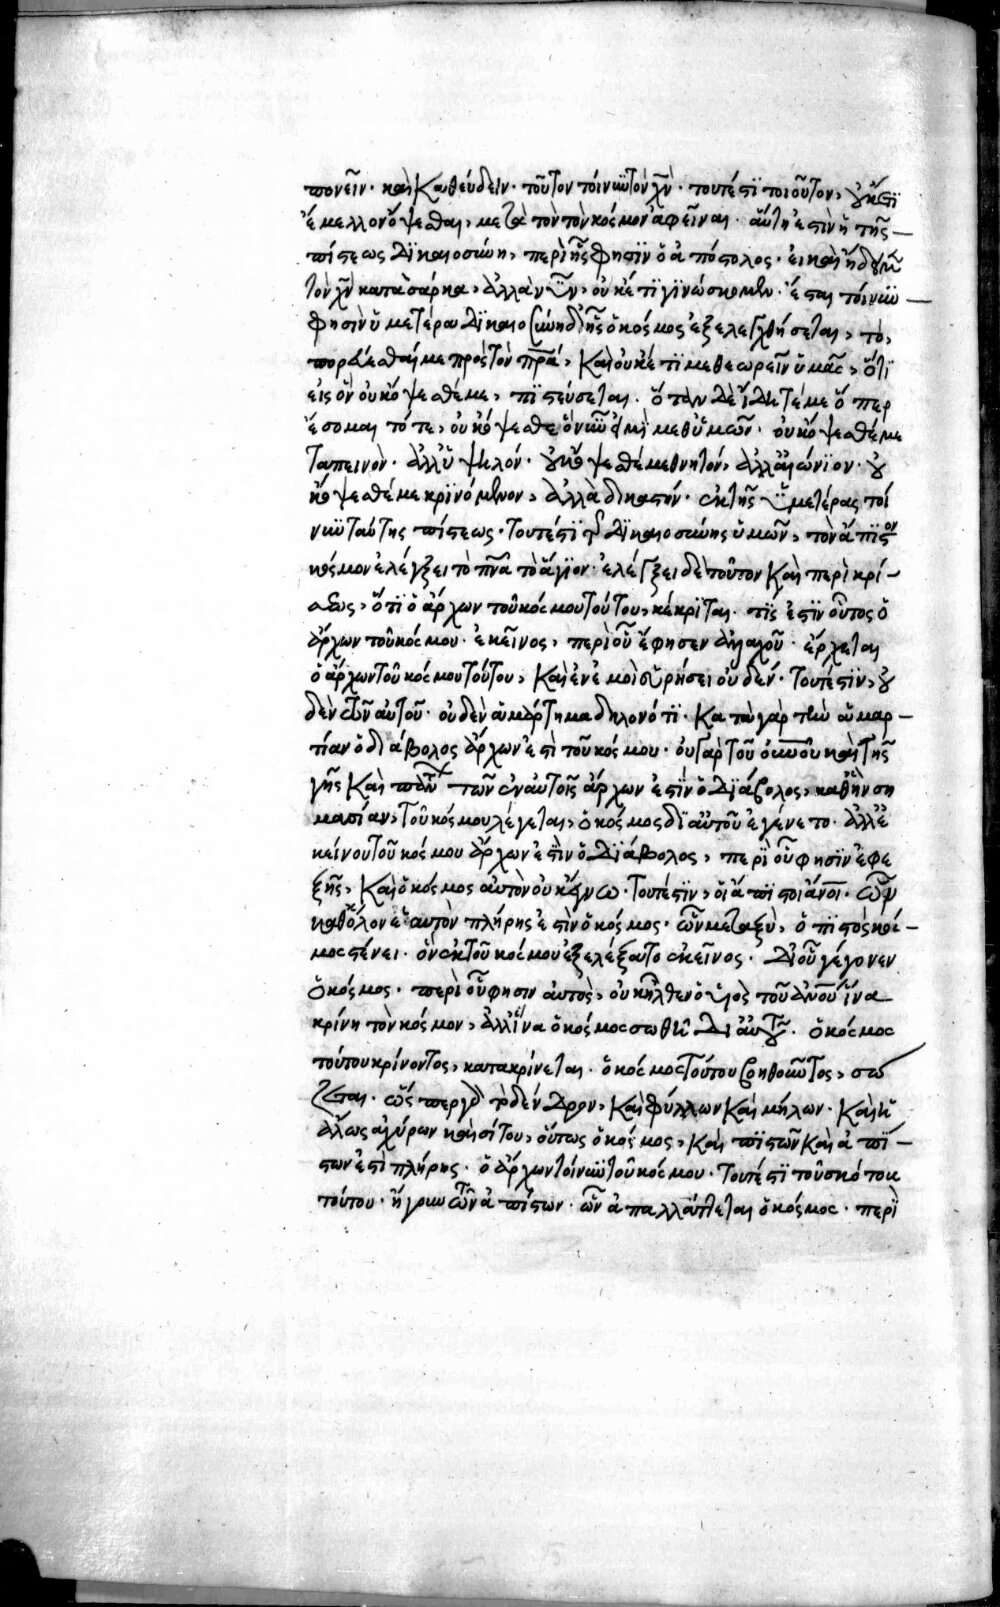 πονεῖν· καὶ καθεύδειν· τοῦτον τοίνυν τὸν χν̅· τουτέστι τοιοῦτον, οὐκέτι
ἔμελλον ὄψεσθαι, μετὰ τὸν τὸν κόσμον ἀφεῖναι· αὕτη ἐστὶν ἡ τῆς
πίστεως δικαιοσύνη, περὶ ἧς φησὶν ὁ ἀπόστολος· εἰ καὶ ἤδουν
τὸν χν̅ κατὰ σάρκα, ἀλλὰ νῦν, οὐκέτι γινώσκομεν· ἔσται τοίνυν
φησὶν ὑμετέρα δικαιοσύνη δι' ἧς ὁ κόσμος ἐξελεγχθήσεται, τὸ,
πορεύεσθαί με πρὸς τὸν πρ̅α, καὶ οὐκέτι με θεωρεῖν ὑμᾶς, ὅτι
εἰς ὃν οὐκ ὄψεσθέ με, πιστεύσεται· ὅταν δὲ ἴδητέ με ὅπερ
ἔσομαι τότε, οὐκ ὄψεσθε ὃν νῦν εἰμὶ μεθ' ὑμῶν· οὐκ ὄψεσθέ με
ταπεινὸν· ἀλλ' ὑψηλόν· οὐκ ὄψεσθέ με θνητόν, ἀλλ' αἰώνιον· οὐ
κ ὄψεσθέ με κρινόμενον, ἀλλὰ δικαστήν· ἐκ τῆς ὑμετέρας τοί
νυν ταύτης πίστεως· τουτέστι τῆς δικαιοσύνης ὑμῶν, τὸν ἄπιστον
κόσμον ἐλέγξει τὸ πν̅α τὸ ἅγιον· ἐλέγξει δὲ τοῦτον καὶ περὶ κρί-
σεως, ὅτι ὁ ἄρχων τοῦ κόσμου τούτου, κέκριται· τίς ἐστιν οὗτος ὁ
ἄρχων τοῦ κόσμου· ἐκεῖνος, περὶ οὗ ἔφησεν ἀλλαχοῦ· ἔρχεται
ὁ ἄρχων τοῦ κόσμου τούτου, καὶ ἐν ἐμοὶ εὑρήσει οὐδέν· τουτέστιν, οὐ
δὲν τῶν αὐτοῦ· οὐδὲν ἁμάρτημα δηλονότι· κατὰ γὰρ τὴν ἁμαρ-
τίαν ὁ διάβολος ἄρχων ἐστὶ τοῦ κόσμου· οὐ γὰρ τοῦ οὐ̅νοῦ καὶ τῆς
γῆς καὶ πάντων τῶν ἐν αὐτοῖς ἄρχων ἐστὶν ὁ διάβολος, καθ' ἣν ση
μασίαν, τοῦ κόσμου λέγεται, ὁ κόσμος δι' αὐτοῦ ἐγένετο· ἀλλ' ἐ
κείνου τοῦ κόσμου ἄρχων ἐστὶν ὁ διάβολος, περὶ οὗ φησὶν ἐφε
ξῆς, καὶ ὁ κόσμος αὐτὸν οὐκ ἔγνω· τουτέστιν, οἱ ἄπιστοι ἄν̅οι· ὧν
καθ' ὅλον ἑαυτὸν πλήρης ἐστὶν ὁ κόσμος· ὧν μεταξὺ, ὁ πιστὸς κόσ-
μος στένει· ὃν ἐκ τοῦ κόσμου ἐξελέξατο ἐκεῖνος· δι' οὗ γέγονεν
ὁ κόσμος· περὶ οὗ φησιν αὐτὸς, οὐκ ἦλθεν ὁ υἱὸς τοῦ ἀν̅ου ἵνα
κρίνῃ τὸν κόσμον, ἀλλ' ἵνα ὁ κόσμος σωθῇ δι' αὐτοῦ· ὁ κόσμος
τούτου κρίνοντος, κατακρίνεται· ὁ κόσμος τούτου βοηθοῦντος, σώ
ζεται· ὥσπερ γὰρ τὸ δένδρον, καὶ φύλλων καὶ μήλων· καὶ ἡ
ἅλως ἀχύρων καὶ σίτου, οὕτως ὁ κόσμος, καὶ πιστῶν καὶ ἀπί-
στων ἐστὶ πλήρης· ὁ ἄρχων τοίνυν τοῦ κόσμου· τουτέστι τοῦ σκότου
τούτου· ἤγουν τῶν ἀπίστων· ὧν ἀπαλλάττεται ὁ κόσμος· περὶ